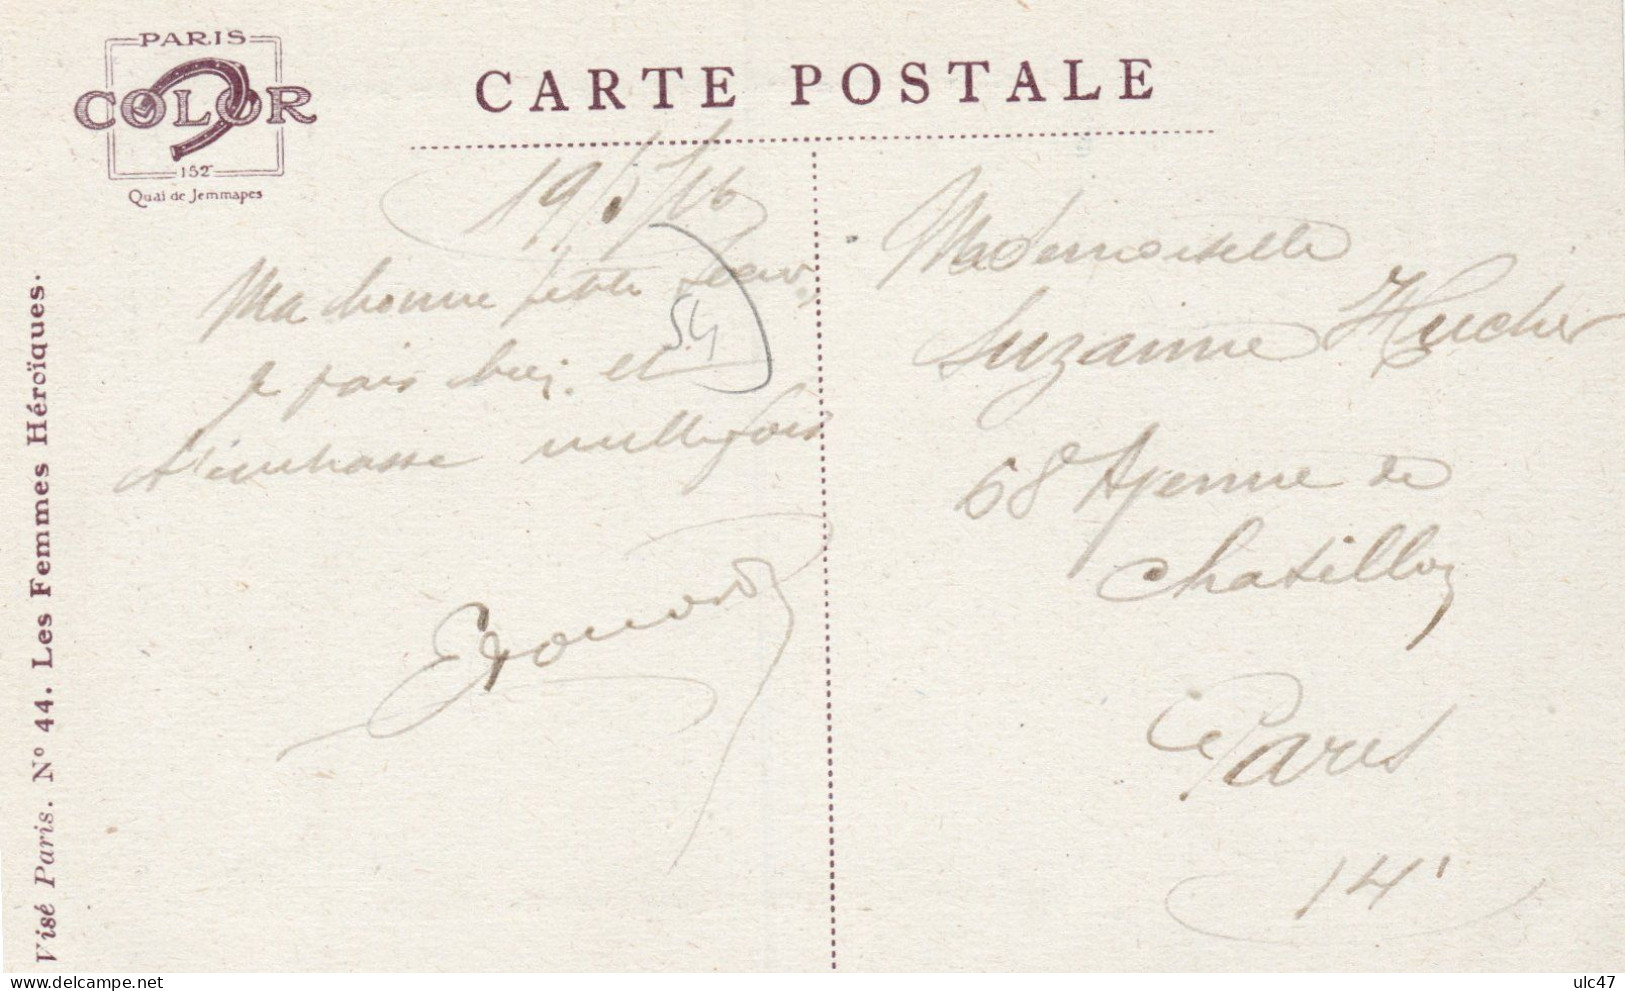 PARIS
COLOR
152
Quai de Jemmapes
CARTE POSTALE
Visé Paris. N° 44. Les Femmes Héroïques.
19/5/16
Ma bonne petite sœur,
54
je vais bien et
t'embrasse mille fois
Edouard
Mademoiselle
Suzanne Hucher
68 Avenue de
Chatillon
Paris
14'
ulc47